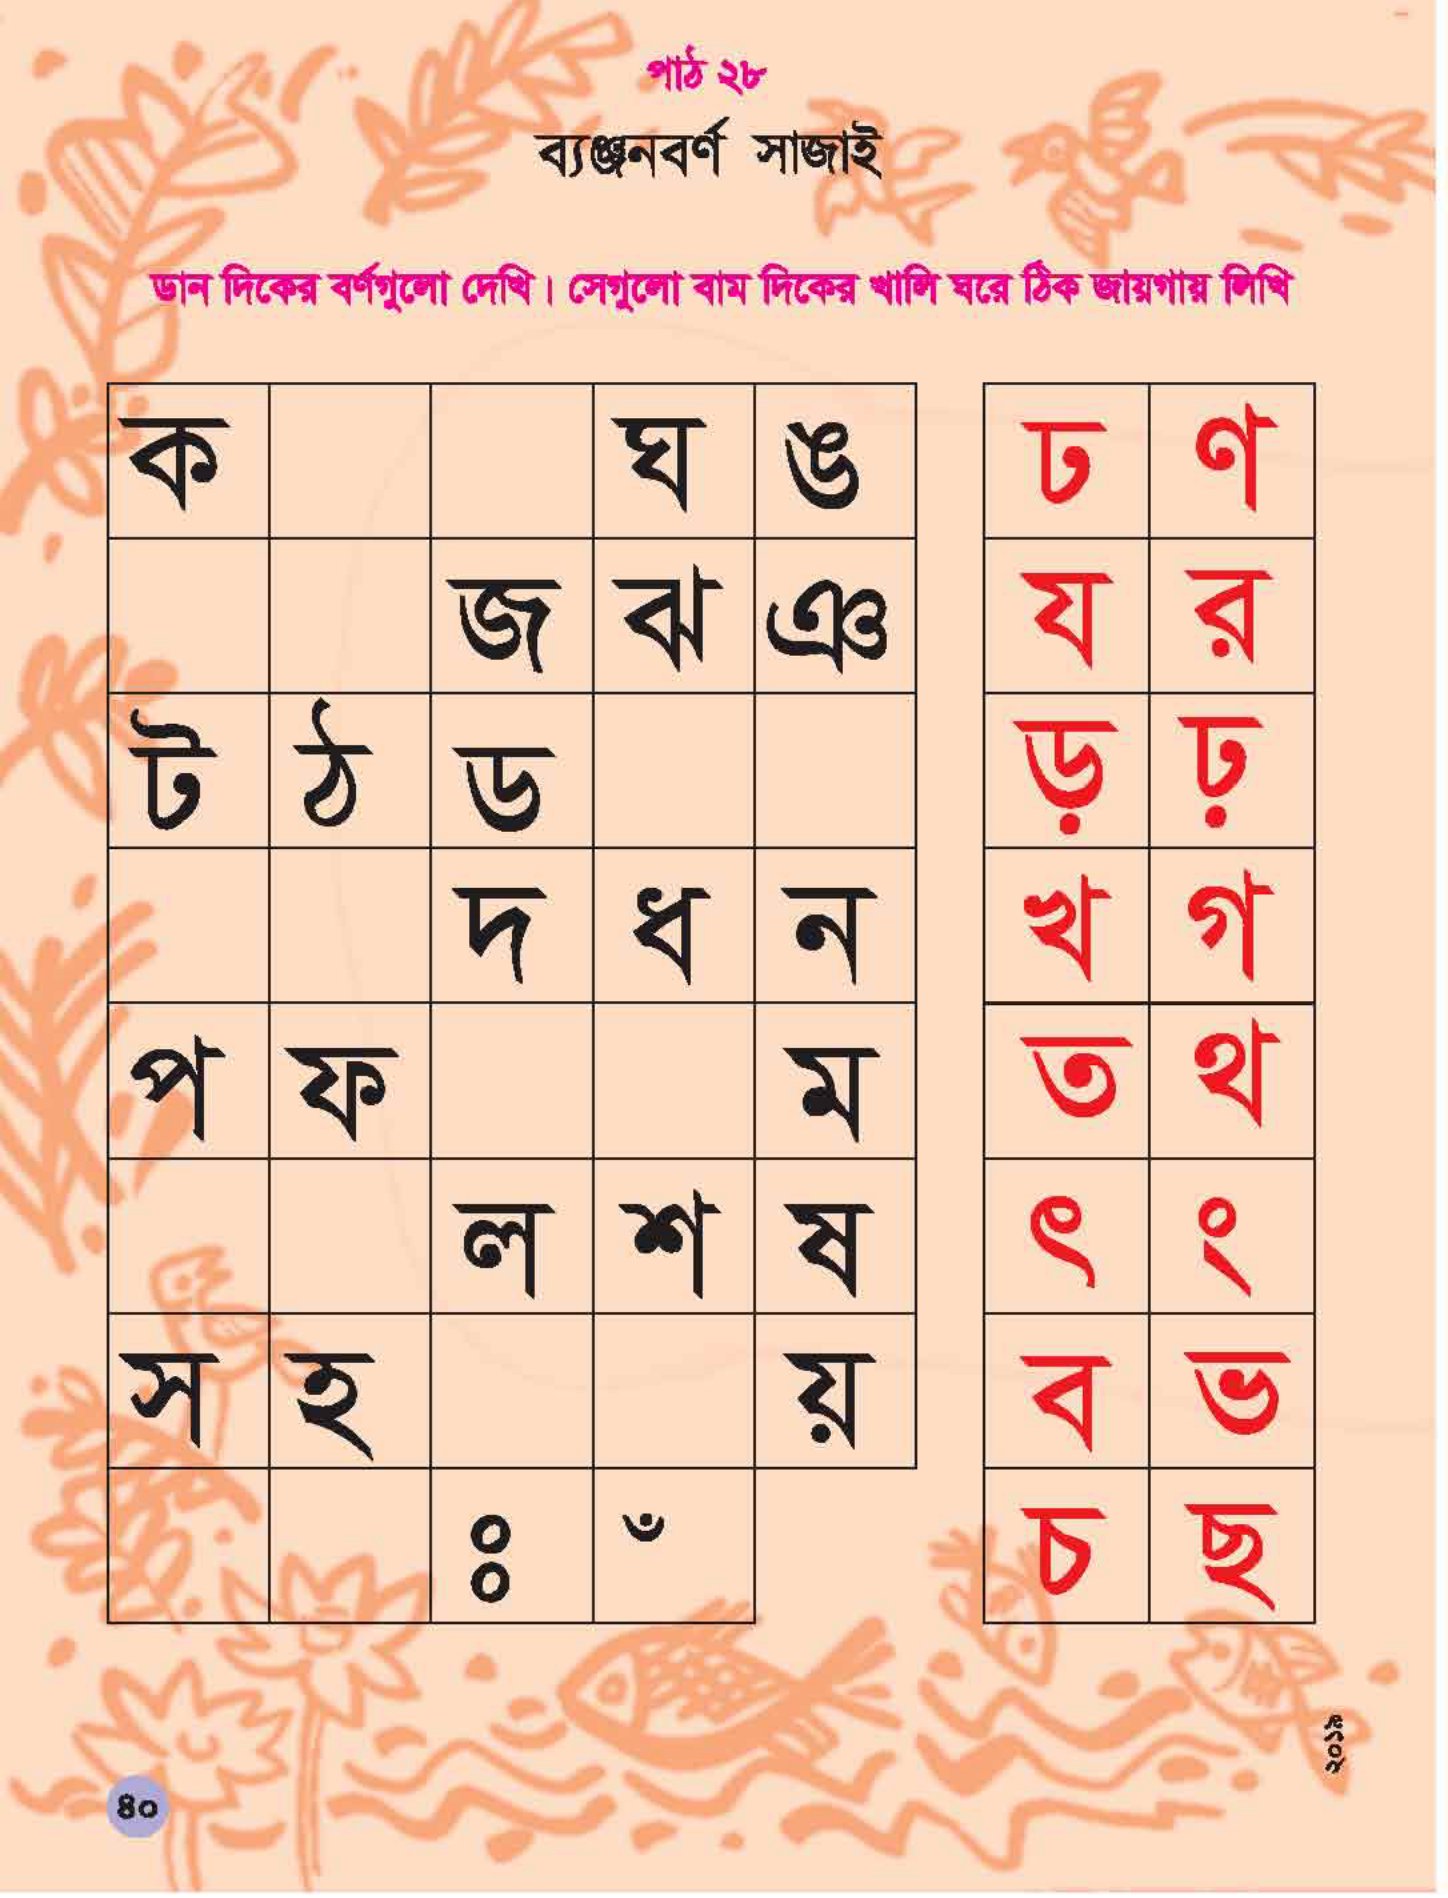 পাঠ ২৮
ব্যঞ্জনবর্ণ সাজাই
ডান দিকের বর্ণগুলো দেখি। সেগুলো বাম দিকের খালি ঘরে ঠিক জায়গায় লিখি
ক ঘ ঙ ঢ ণ
জ ঝ ঞ য র
ট ঠ ড ড় ঢ়
দ ধ ন খ গ
প ফ ম ত থ
ল শ ষ ৎ ং
স হ য় ব ভ
ঃ ঁ চ ছ
২০১৯
৪০